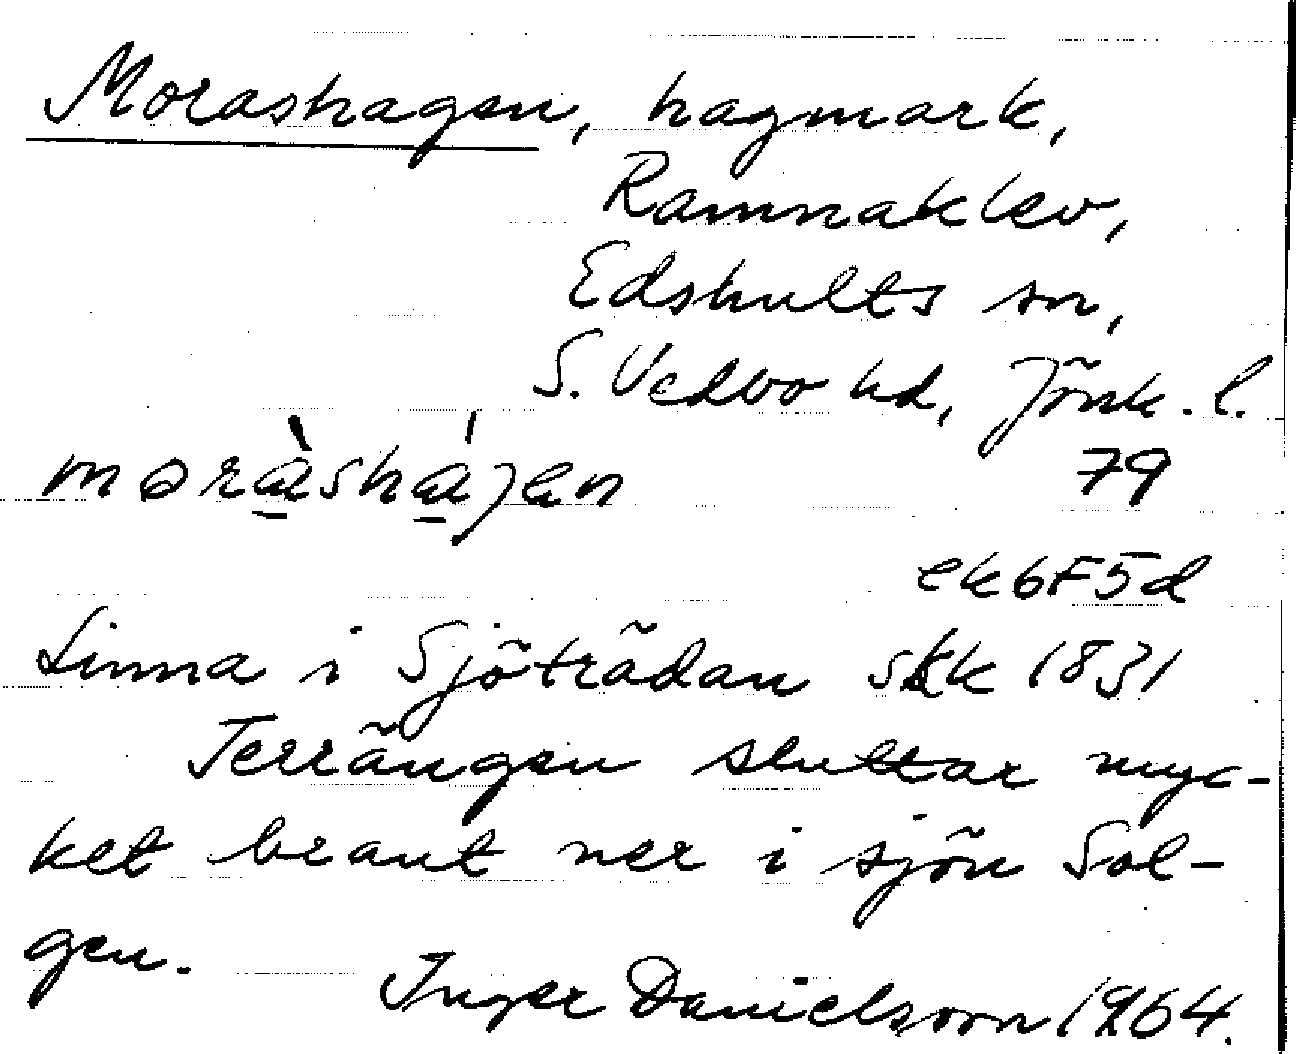 Morashagen, hagmark,
Ramnaklev,
Edshults sn,
S. Vedbo hd, Jönk. l.
moràshájen
79
ek6F5d
Linna i Sjöträdan skk 1831
Terrängen sluttar myc-
ket brant ner i sjön Sol-
gen.
Inger Danielsson 1964.